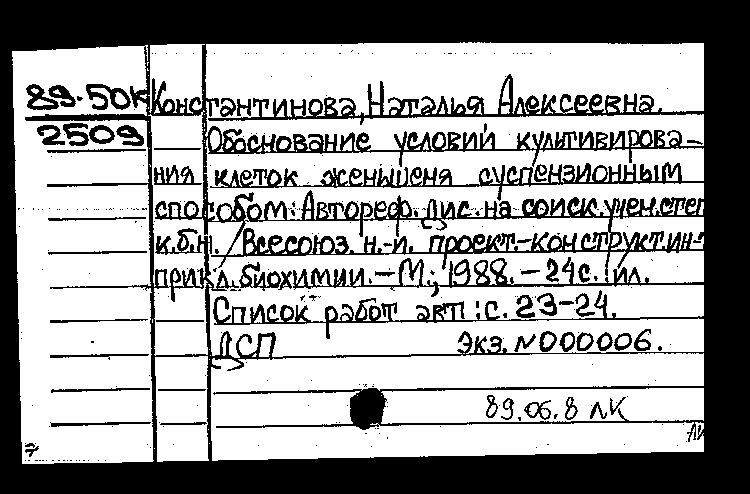 89-50К Константинова, Наталья Алексеевна.
2509 Обоснование условий культивирова-
ния клеток женьшеня суспензионным
способом: Автореф. дис. на соиск. учен. степ
к.б.н. / Всесоюз. н.-и. проект.-конструкт. ин-т
прикл. биохимии. - М., 1988. - 24с. ил.
Список работ авт.: с. 23-24.
ДСП Экз. N000006.
89.06.8 ЛК